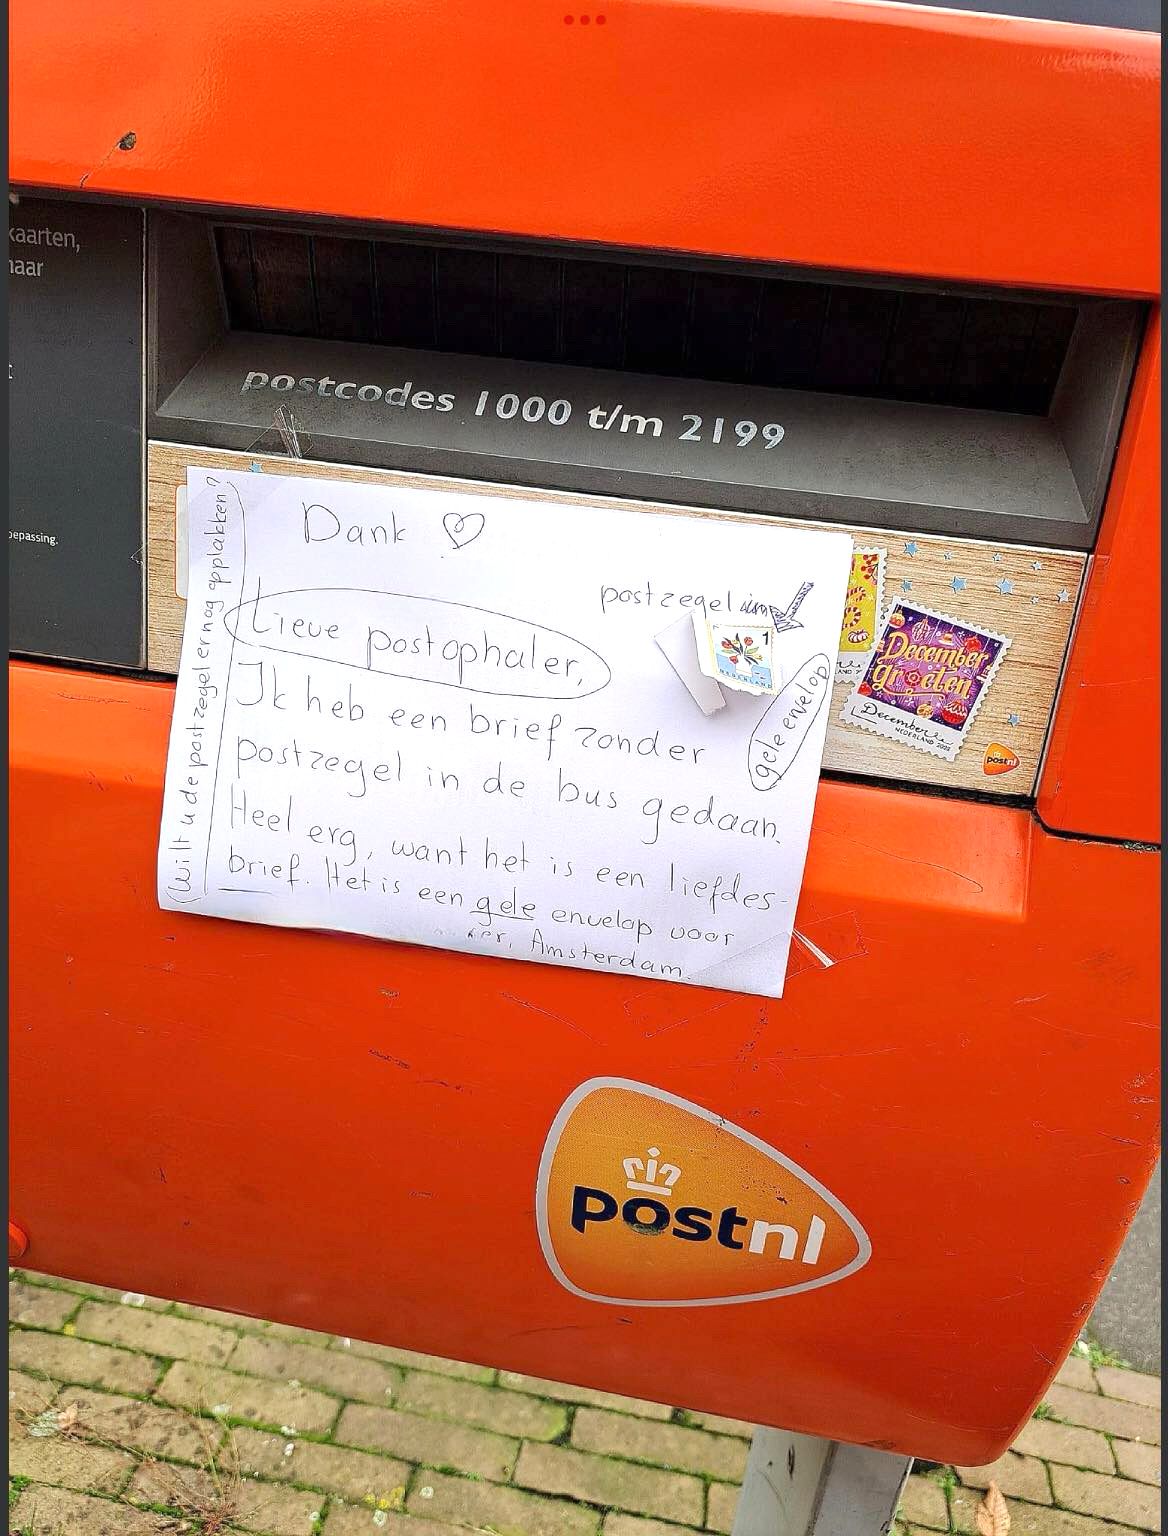 kaarten,
naar
t
oepassing.
postcodes 1000 t/m 2199
Dank
postzegel
Lieve postophaler,
Ik heb een brief zonder
postzegel in de bus gedaan.
Heel erg, want het is een liefdes-
brief. Het is een gele envelop voor
Amsterdam.
(Wilt u de postzegel er nog opplakken?
gele envelop
1
NEDERLAND
December
groeten
December
NEDERLAND
postnl
postnl